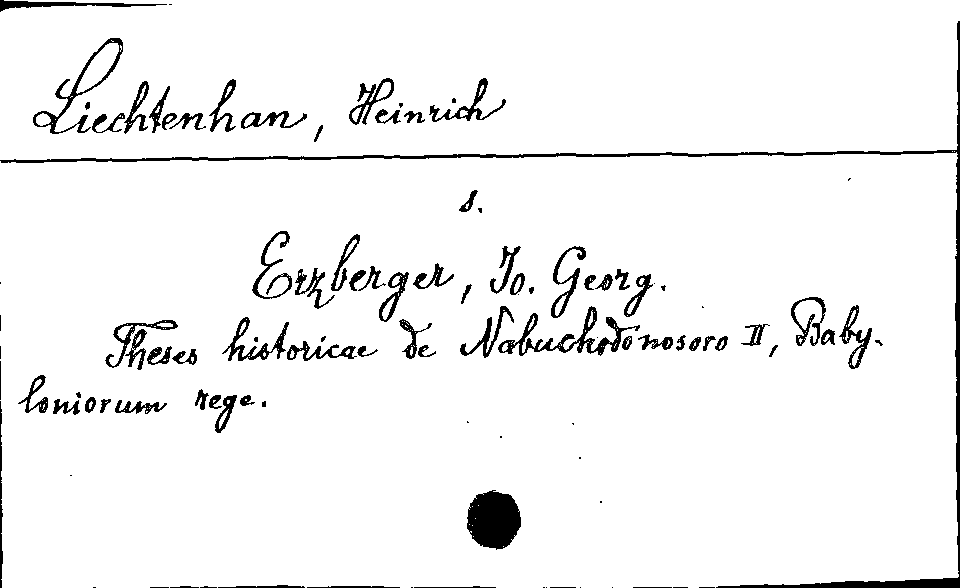 Liechtenhan, Heinrich
s.
Erzberger, Jo. Georg.
Theses historicae de Nabuchodonosoro II, Baby-
loniorum rege.